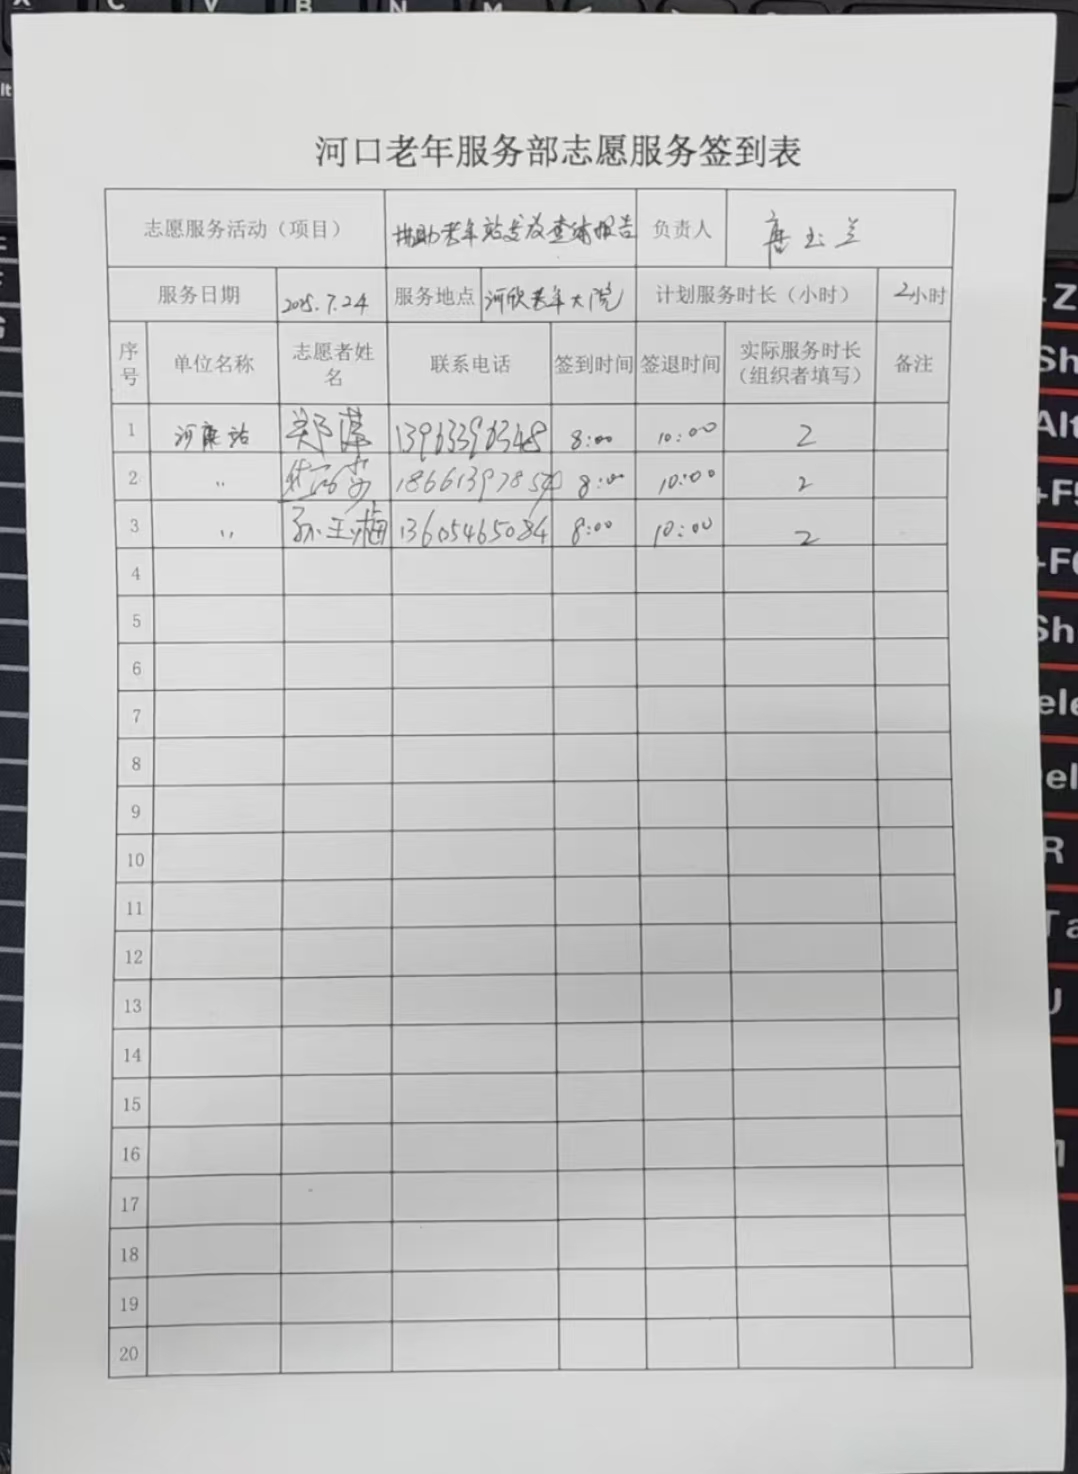 河口老年服务部志愿服务签到表
志愿服务活动（项目） 协助老年站发放查体报告 负责人 唐玉兰
服务日期 2025.7.24 服务地点 河欣老年大院 计划服务时长（小时） 2小时
序号 单位名称 志愿者姓名 联系电话 签到时间 签退时间 实际服务时长（组织者填写） 备注
1 河康站 郑萍 13963396348 8:00 10:00 2
2 〃 186613978 8:00 10:00 2
3 〃 孙玉梅 13605465084 8:00 10:00 2
4
5
6
7
8
9
10
11
12
13
14
15
16
17
18
19
20